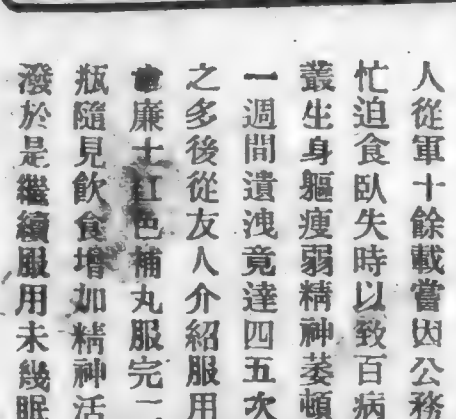 人從軍十餘載嘗因公務
忙迫食臥失時以致百病
叢生身軀瘦弱精神萎頓
一週間遺洩竟達四五次
之多後從友人介紹服用
廉士紅色補丸服完二
瓶隨見飲食增加精神活
潑於是繼續服用未幾眠